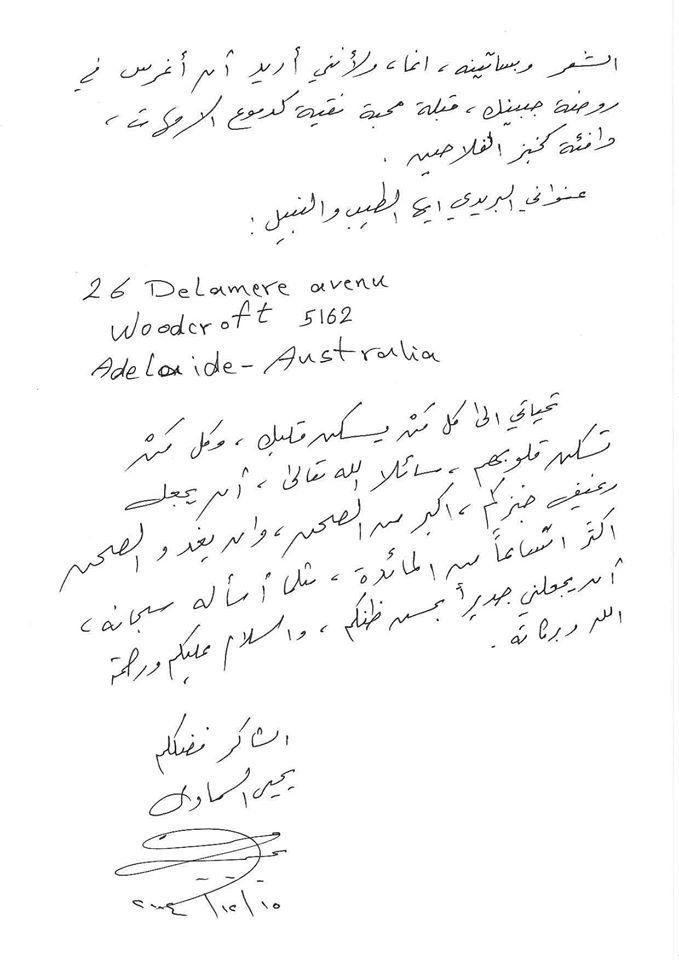 الشعر وبساتينه ، انما ، ولأنني أريد أن أغرس في
روضة جبينك ، قبلة محبة نقية كدموع الامهات ،
دافئة كخبز الفلاحين .
عنواني البريدي ايها الطيب والنبيل :
26 Delamere avenu
Woodcroft 5162
Adelaide - Australia
تحياتي الى كل مَنْ يسكن قلبك ، وكل مَنْ
تسكن قلوبهم ، سائلا الله تعالى ، أن يجعل
رغيف خبزكم ، اكبر من الصحن ، وان يغدو الصحن
اكثر اتساعاً من المائدة ، مثلما أسأله سبحانه ،
أن يجعلني جديراً بحسن ظنكم ، والسلام عليكم ورحمة
الله وبركاته .
الشاكر فضلكم
يحيى السماوي
٢٠٠٤/١٢/١٥